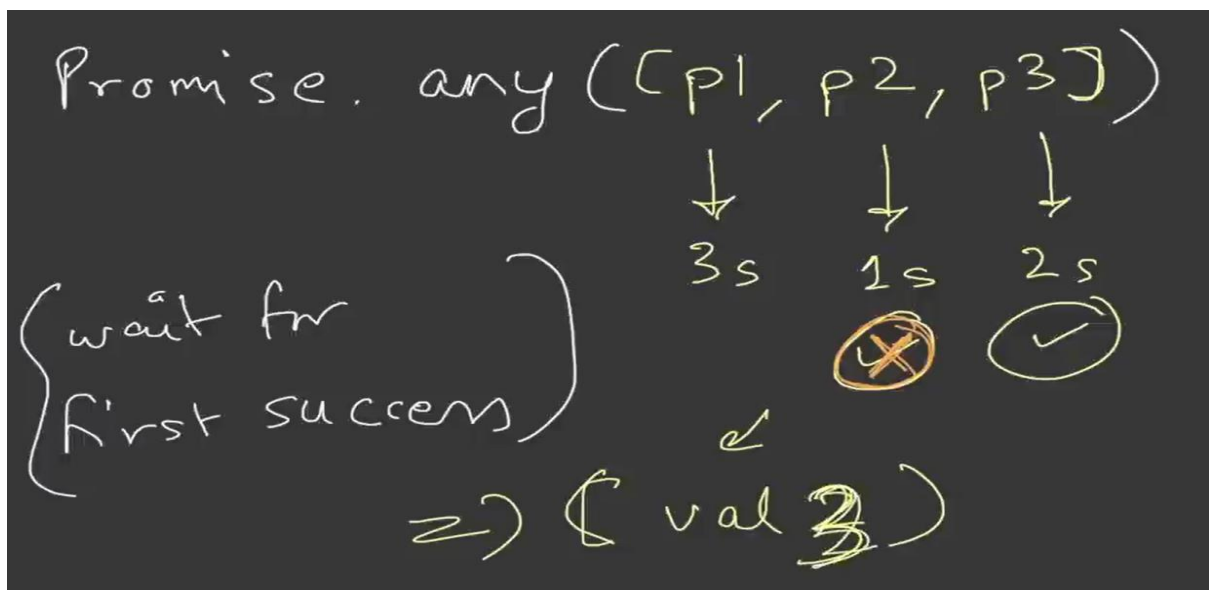 Promise. any([p1, p2, p3])
3s 1s 2s
(wait for
first success)
=> ( val 3 )